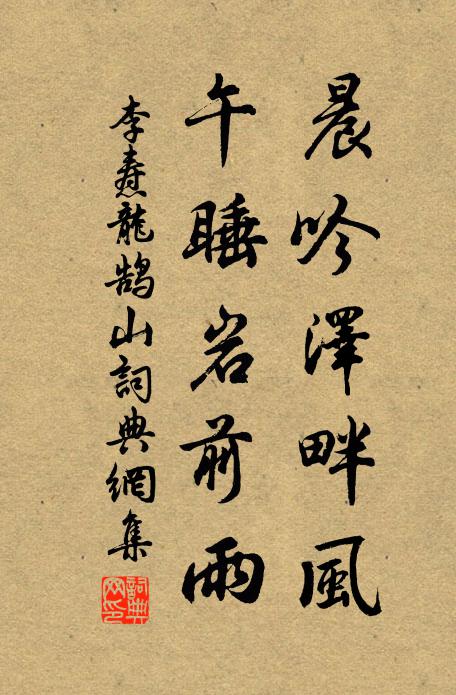 晨吟澤畔風
午睡岩前雨
李壽龍鵠山詞典網集
詞典
网印